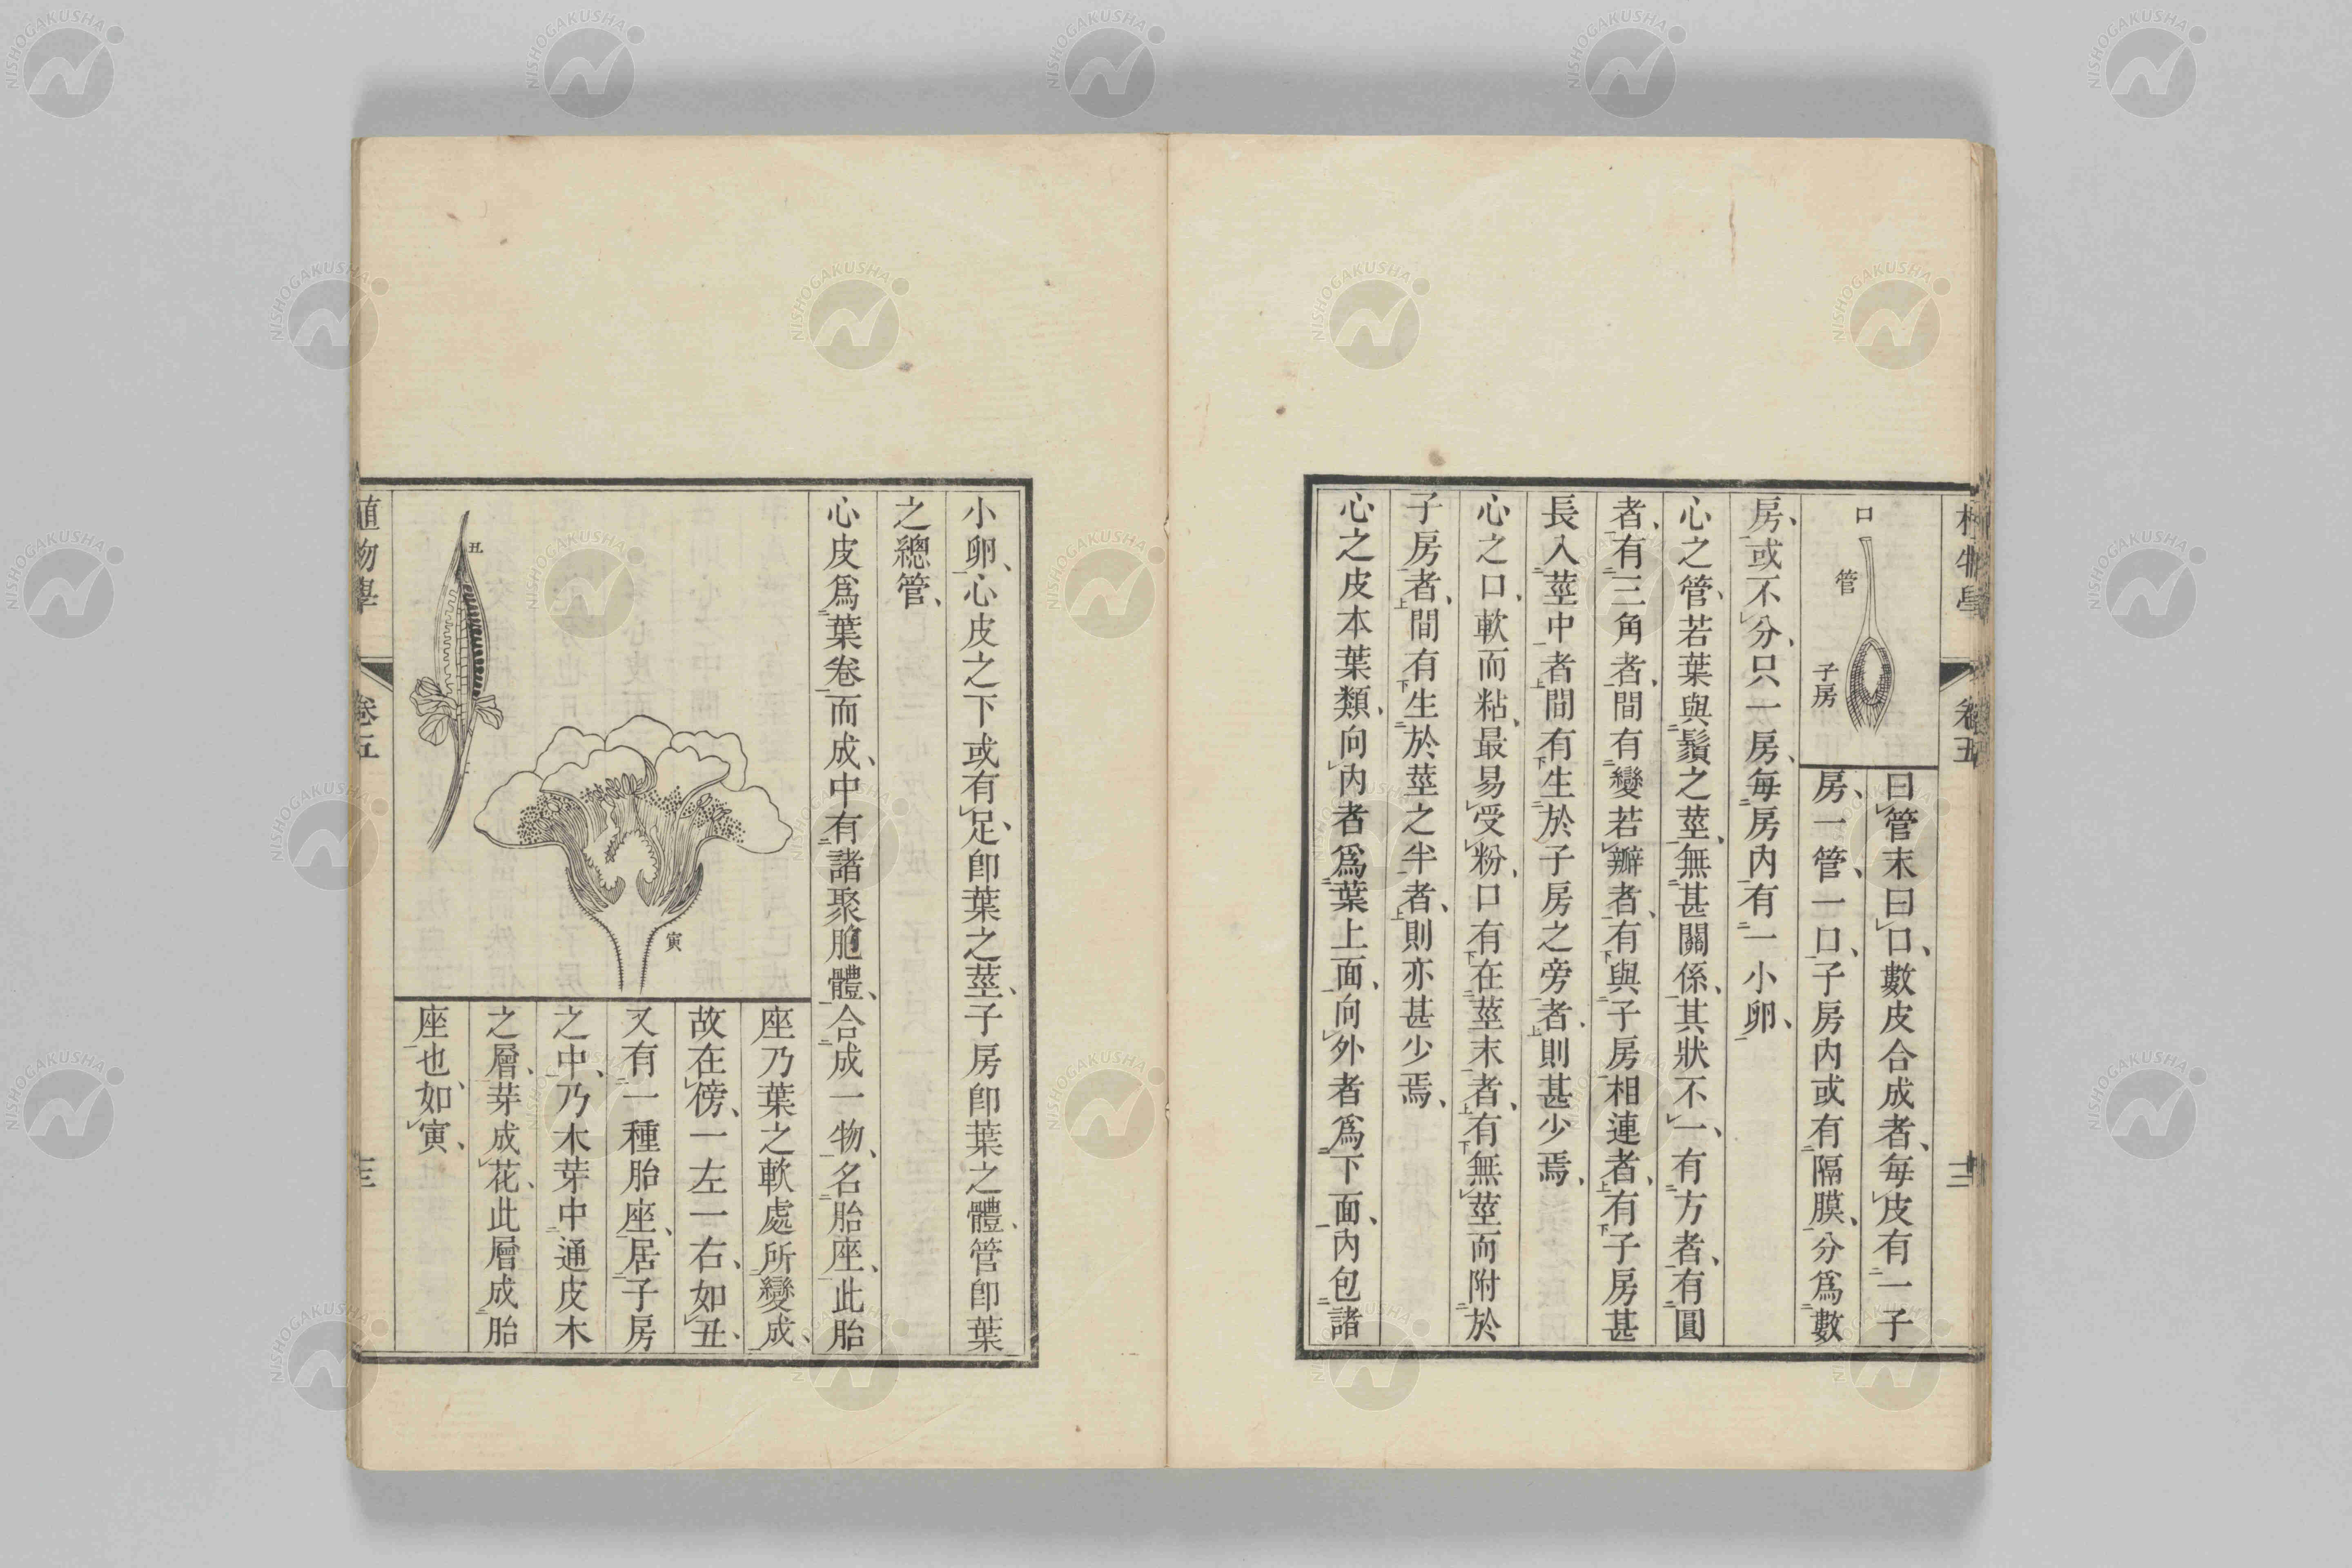 植物學 卷五 二
口
管
子房
曰管末曰口、數皮合成者、每皮有一子
房、一管、一口、子房內或有隔膜、分爲數
房、或不分、只一房、每房內有一小卵、
心之管、若葉與鬚之莖、無甚關係、其狀不一、有方者、有圓
者、有三角者、間有變若瓣者、有與子房相連者、有子房甚
長入莖中者間有生於子房之旁者、則甚少焉、
心之口、軟而粘、最易受粉、口有在莖末者、有無莖而附於
子房者、間有生於莖之半者、則亦甚少焉、
心之皮本葉類、向內者爲葉上面、向外者爲下面、內包諸
小卵、心皮之下或有足、卽葉之莖、子房卽葉之體、管卽葉
之總管、
心皮爲葉卷而成、中有諸聚胞體、合成一物、名胎座、此胎
丑
寅
座乃葉之軟處所變成、
故在傍、一左一右、如丑、
又有一種胎座、居子房
之中、乃木芽中通皮木
之層、芽成花、此層成胎
座也、如寅、
植物學 卷五 三
NISHOGAKUSHA